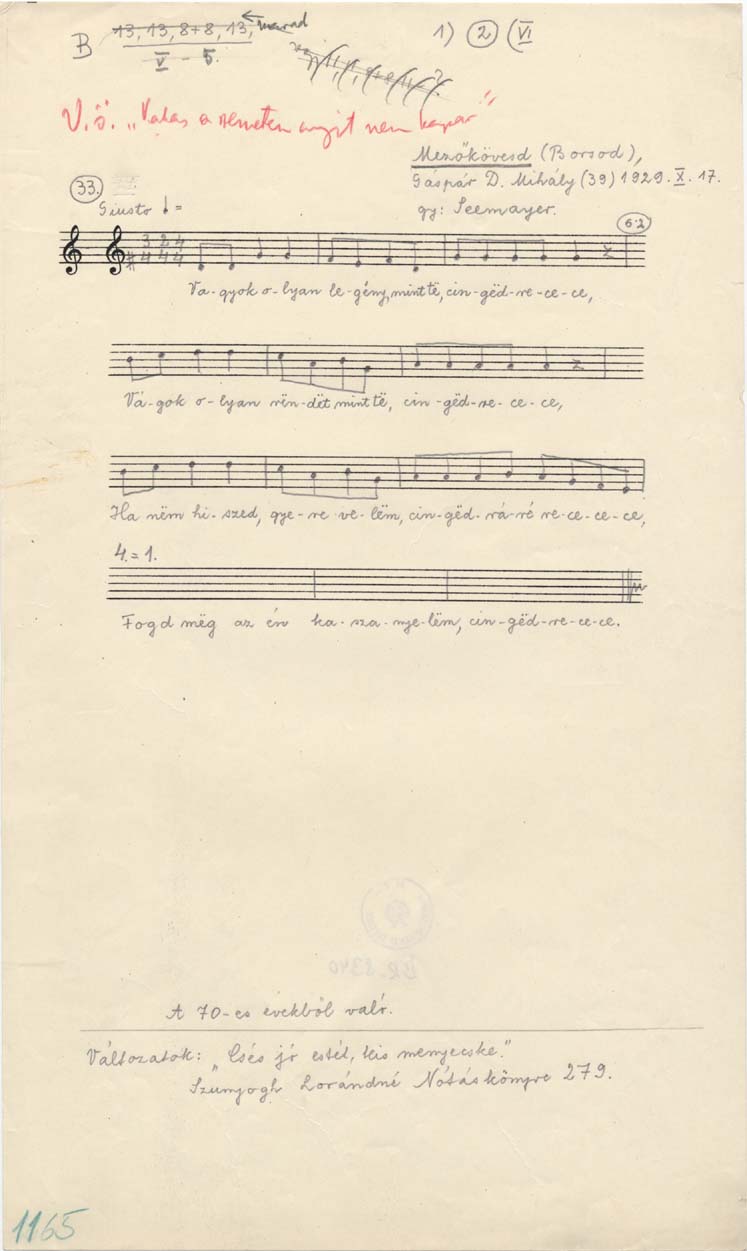 B 13, 13, 8+8, 13, marad
V - 5.
1) 2 (VI
V.ö. „ a nem
Mezőkövesd (Borsod),
Gáspár D. Mihály (39) 1929. X. 17.
gy: Seemayer.
33.
Giusto ♩ =
6·2
3 2 4
4 4 4
Va-gyok o-lyan le-gény, mint të, cin-gëd-re-ce-ce,
Vá-gok o-lyan rën-dët mint të, cin-gëd-re-ce-ce,
Ha nëm hi-szed, gye-re ve-lëm, cin-gëd-rá-ré re-ce-ce-ce,
4. = 1.
Fogd mëg az én ka-sza-nye-lëm, cin-gëd-re-ce-ce.
A 70-es évekből való.
Változatok: „Csés jó estét, kis menyecske."
Szunyogh Lorándné Nótáskönyve 279.
1165